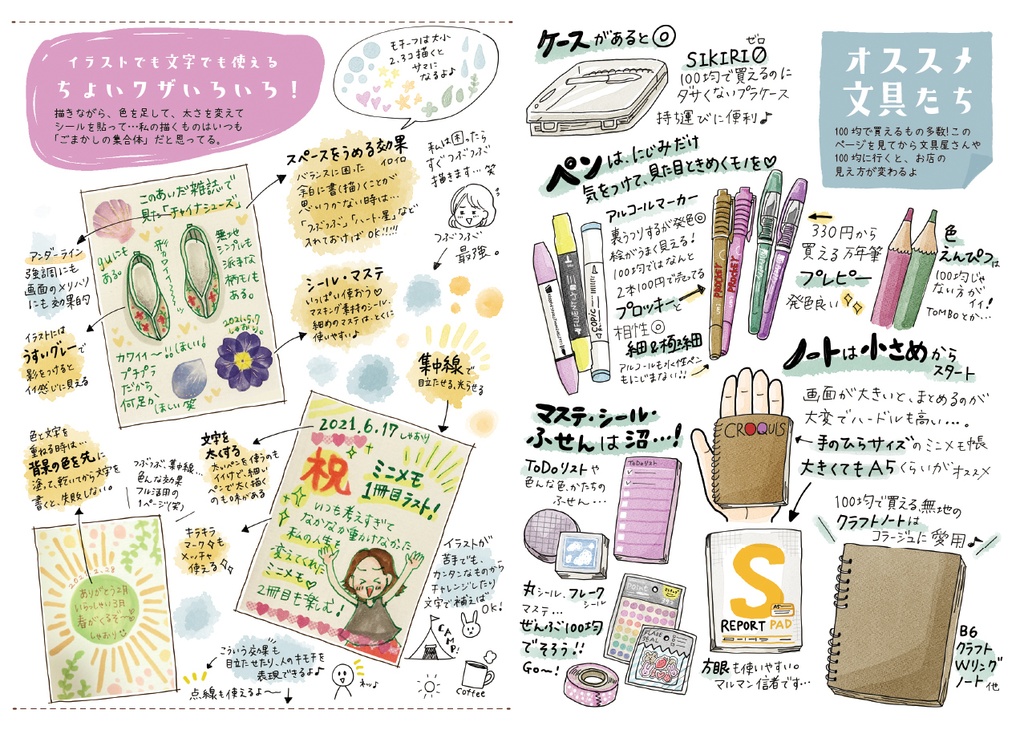 イラストでも文字でも使える
ちょいワザいろいろ!
描きながら、色を足して、太さを変えて
シールを貼って…私の描くものはいつも
「ごまかしの集合体」だと思ってる。
モチーフは大小
2.3コ描くと
サマに
なるよ♪
スペースをうめる効果
イロイロ
バランスに困った
余白に書(描)くことが
思いつかない時は…
「つぶつぶ」「ハート・星」など
入れておけばOK!!!!
私は困ったら
すぐつぶつぶ
描きます…笑
つぶつぶ
最強。
このあいだ雑誌で
見た「チャイナシューズ」
guにも
ある。
形カワイイ〜
無地
シンプルも
派手な
柄モノも
ある。
2021.5.7
しゃおり。
カワイイ〜!!ほしい!
プチプラ
だから
何足か
ほしい笑
アンダーライン
強調にも
画面のメリハリ
にも効果的
イラストは
うすいグレーで
影をつけると
イイ感じに見える
シール・マステ
いっぱい使おう♡
マスキング素材のシール、
細めのマステは、とくに
使いやすい♪
集中線で
目立たせる、光らせる
色と文字を
重ねる時は…
背景の色を先に
塗って、乾いてから文字を
書くと、失敗しない。
つぶつぶ、集中線…
色んな効果
フル活用の
1ページ(笑)
文字を
太くする
太いペンを使うのも
イイけど、細い
ペンで太く描く
のも味がある
キラキラ
マークも
メッチャ
使える
2021.2.28
ありがとう2月
いらっしゃい3月
春がくるぞ〜
しゃおり
2021.6.17 しゃおり
祝
ミニメモ
1冊目ラスト!
いつも考えすぎて
なかなか動けなかった
私の人生を
変えてくれた
ミニメモ♡
2冊目も楽しむ!
イラストが
苦手でも、
カンタンなものから
チャレンジしたり
文字で補えば
OK!
こういう効果も
目立たせたり、人のキモチを
表現できるよ♪
点線も使えるよ〜
CAMP!
coffee
ケースがあると◎
SIKIRI0
ゼロ
100均で買えるのに
ダサくないプラケース
持ち運びに便利♪
オススメ
文具たち
100均で買えるもの多数!この
ページを見てから文具屋さんや
100均に行くと、お店の
見え方が変わるよ
ペンは、にじみだけ
気をつけて、見た目ときめくモノを♡
アルコールマーカー
裏うつりするが発色◎
絵がうまく見える!
100均ではなんと
2本100円で売ってる
プロッキーと
相性◎
細&極細
アルコールも水性ペン
もにじまない!!
COPIC
PROCKEY
PROCKEY
330円から
買える万年筆
プレピー
発色良い
色
えんぴつは
100均じゃ
ない方が
イイ!
TOMBOとか…
ノートは小さめから
スタート
画面が大きいと、まとめるのが
大変でハードルも高い…。
CROQUIS
手のひらサイズのミニメモ帳
大きくてもA5くらいがオススメ
マステ・シール・
ふせんは沼…!
ToDoリストや
色んな色、かたちの
ふせん…
ToDoリスト
丸シール、フレーク
シール
マステ…
ぜんぶ100均
でそろう!!
Go〜!
S
A5
REPORT PAD
方眼も使いやすい。
マルマン信者です…
100均で買える、無地の
クラフトノートは
コラージュに愛用♪
B6
クラフト
Wリング
ノート他